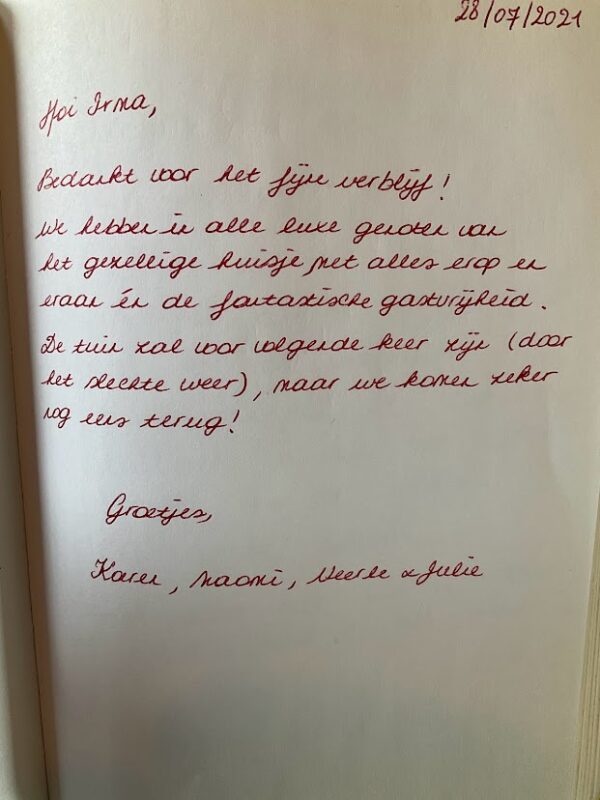 28/07/2021
Hoi Irma,
Bedankt voor het fijne verblijf!
We hebben in alle luxe genoten van
het gezellige huisje, met alles erop en
eraan én de fantastische gastvrijheid.
De tuin zal voor volgende keer zijn (door
het slechte weer), maar we komen zeker
nog eens terug!
Groetjes,
Karen, Naomi, Veerle & Julie